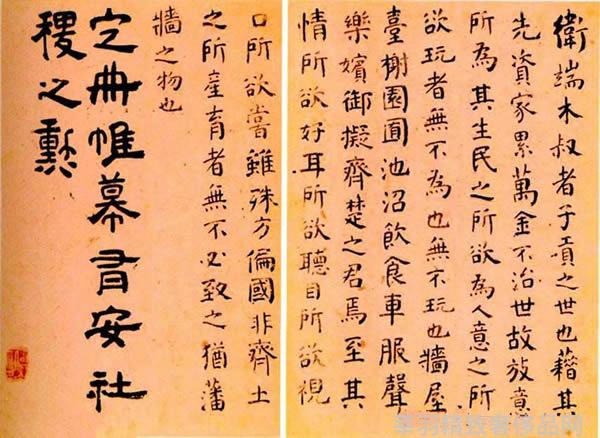 衛端木叔者子貢之世也藉其
先資家累萬金不治世故放意
所為其生民之所欲為人意之所
欲玩者無不為也無不玩也牆屋
臺榭園囿池沼飲食車服聲
樂嬪御擬齊楚之君焉至其
情所欲好耳所欲聽目所欲視
口所欲嘗雖殊方偏國非齊土
之所產育者無不必致之猶藩
牆之物也
定冊帷幕有安社
稷之勳